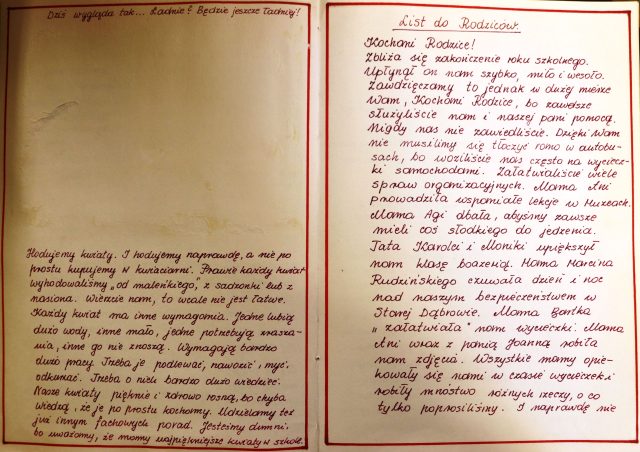 Dziś wygląda tak... Ładnie? Będzie jeszcze ładniej!
Hodujemy kwiaty. I hodujemy naprawdę, a nie po
prostu kupujemy w kwiaciarni. Prawie każdy kwiat
wyhodowaliśmy „od maleńkiego”, z sadzonki lub z
nasiona. Wierzcie nam, to wcale nie jest łatwe.
Każdy kwiat ma inne wymagania. Jedne lubią
dużo wody, inne mało, jedne potrzebują zrasza-
nia, inne go nie znoszą. Wymagają bardzo
dużo pracy. Trzeba je podlewać, nawozić, myć,
odkurzać. Trzeba o nich bardzo dużo wiedzieć.
Nasze kwiaty pięknie i zdrowo rosną, bo chyba
wiedzą, że je po prostu kochamy. Udzielamy też
już innym fachowych porad. Jesteśmy dumni,
bo uważamy, że mamy najpiękniejsze kwiaty w szkole.
List do Rodziców.
Kochani Rodzice!
Zbliża się zakończenie roku szkolnego.
Upłynął on nam szybko, miło i wesoło.
Zawdzięczamy to jednak w dużej mierze
Wam, Kochani Rodzice, bo zawsze
służyliście nam i naszej pani pomocą.
Nigdy nas nie zawiedliście. Dzięki Wam
nie musieliśmy się tłoczyć rano w autobu-
sach, bo woziliście nas często na wyciecz-
ki samochodami. Załatwialiście wiele
spraw organizacyjnych. Mama Ani
prowadziła wspaniałe lekcje w Muzeach.
Mama Agi dbała, abyśmy zawsze
mieli coś słodkiego do jedzenia.
Tata Karolci i Moniki upiększył
nam klasę boazerią. Mama Marcina
Rudzińskiego czuwała dzień i noc
nad naszym bezpieczeństwem w
Starej Dąbrowie. Mama Bartka
„załatwiała” nam wycieczki. Mama
Ani wraz z panią Joanną robiła
nam zdjęcia. Wszystkie mamy opie-
kowały się nami w czasie wycieczek i
robiły mnóstwo różnych rzeczy, o co
tylko poprosiliśmy. I naprawdę nie